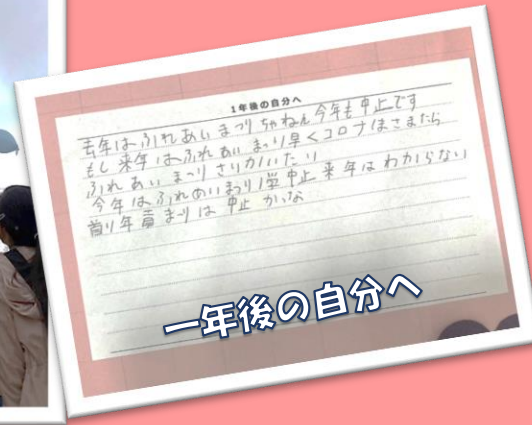 1年後の自分へ
去年はふれあいまつりちゃねん今年も中止です
もし来年はふれあいまつり早くコロナはさまたら
ふれあいまつりさりかいたい
今年はふれあいまつり中止来年はわからない
年 まつりは中止かな
一年後の自分へ